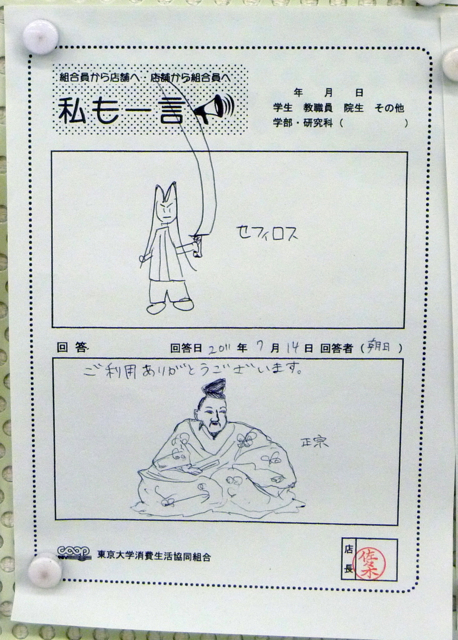 組合員から店舗へ 店舗から組合員へ
私も一言
年 月 日
学生 教職員 院生 その他
学部・研究科 ( )
セフィロス
回答 回答日 2011 年 7 月 14 日 回答者 ( )
ご利用ありがとうございます。
正宗
coop 東京大学消費生活協同組合
店長
佐々木